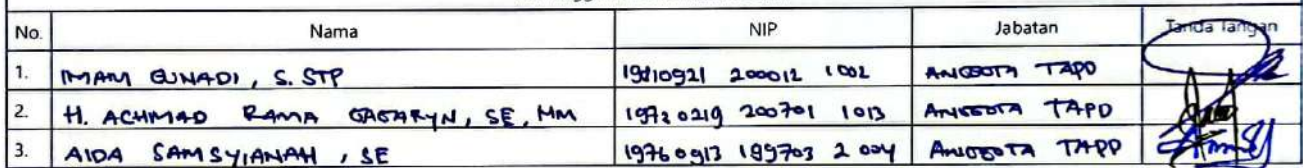 No. Nama NIP Jabatan Tanda Tangan
1. IMAM GUNADI, S. STP 19810921 200012 1 002 ANGGOTA TAPD
2. H. ACHMAD RAMA GAGARYN, SE, MM 19720219 200701 1 013 ANGGOTA TAPD
3. AIDA SAMSYIANAH, SE 19760913 199703 2 004 ANGGOTA TAPD